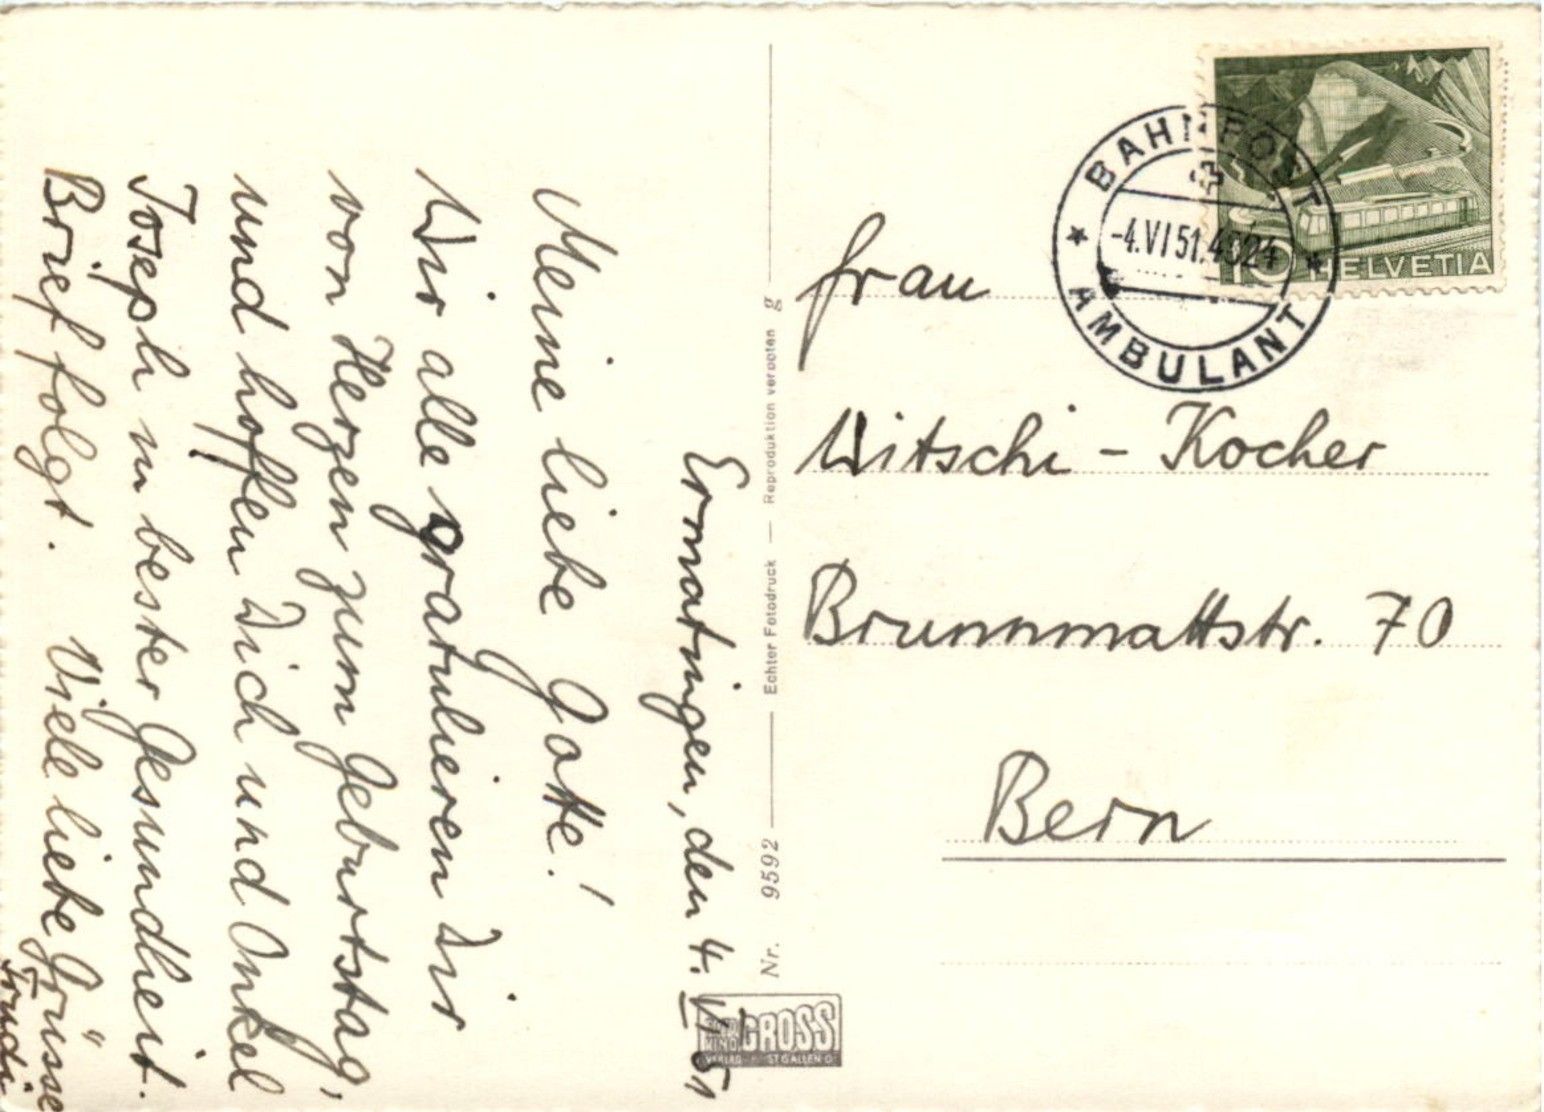 Ermatingen, den 4. VI 51
Meine liebe Gotte!
Wir alle gratulieren Dir
von Herzen zum Geburtstag,
und hoffen Dich und Onkel
Joseph in bester Gesundheit.
Brief folgt. Viele liebe Grüsse
Trudi
Nr. 9592 — Echter Fotodruck — Reproduktion verboten g
GROSS
VERLAG ST GALLEN
BAHNPOST
-4.VI51.4024
AMBULANT
10 HELVETIA
Frau
Witschi - Kocher
Brunnmattstr. 70
Bern